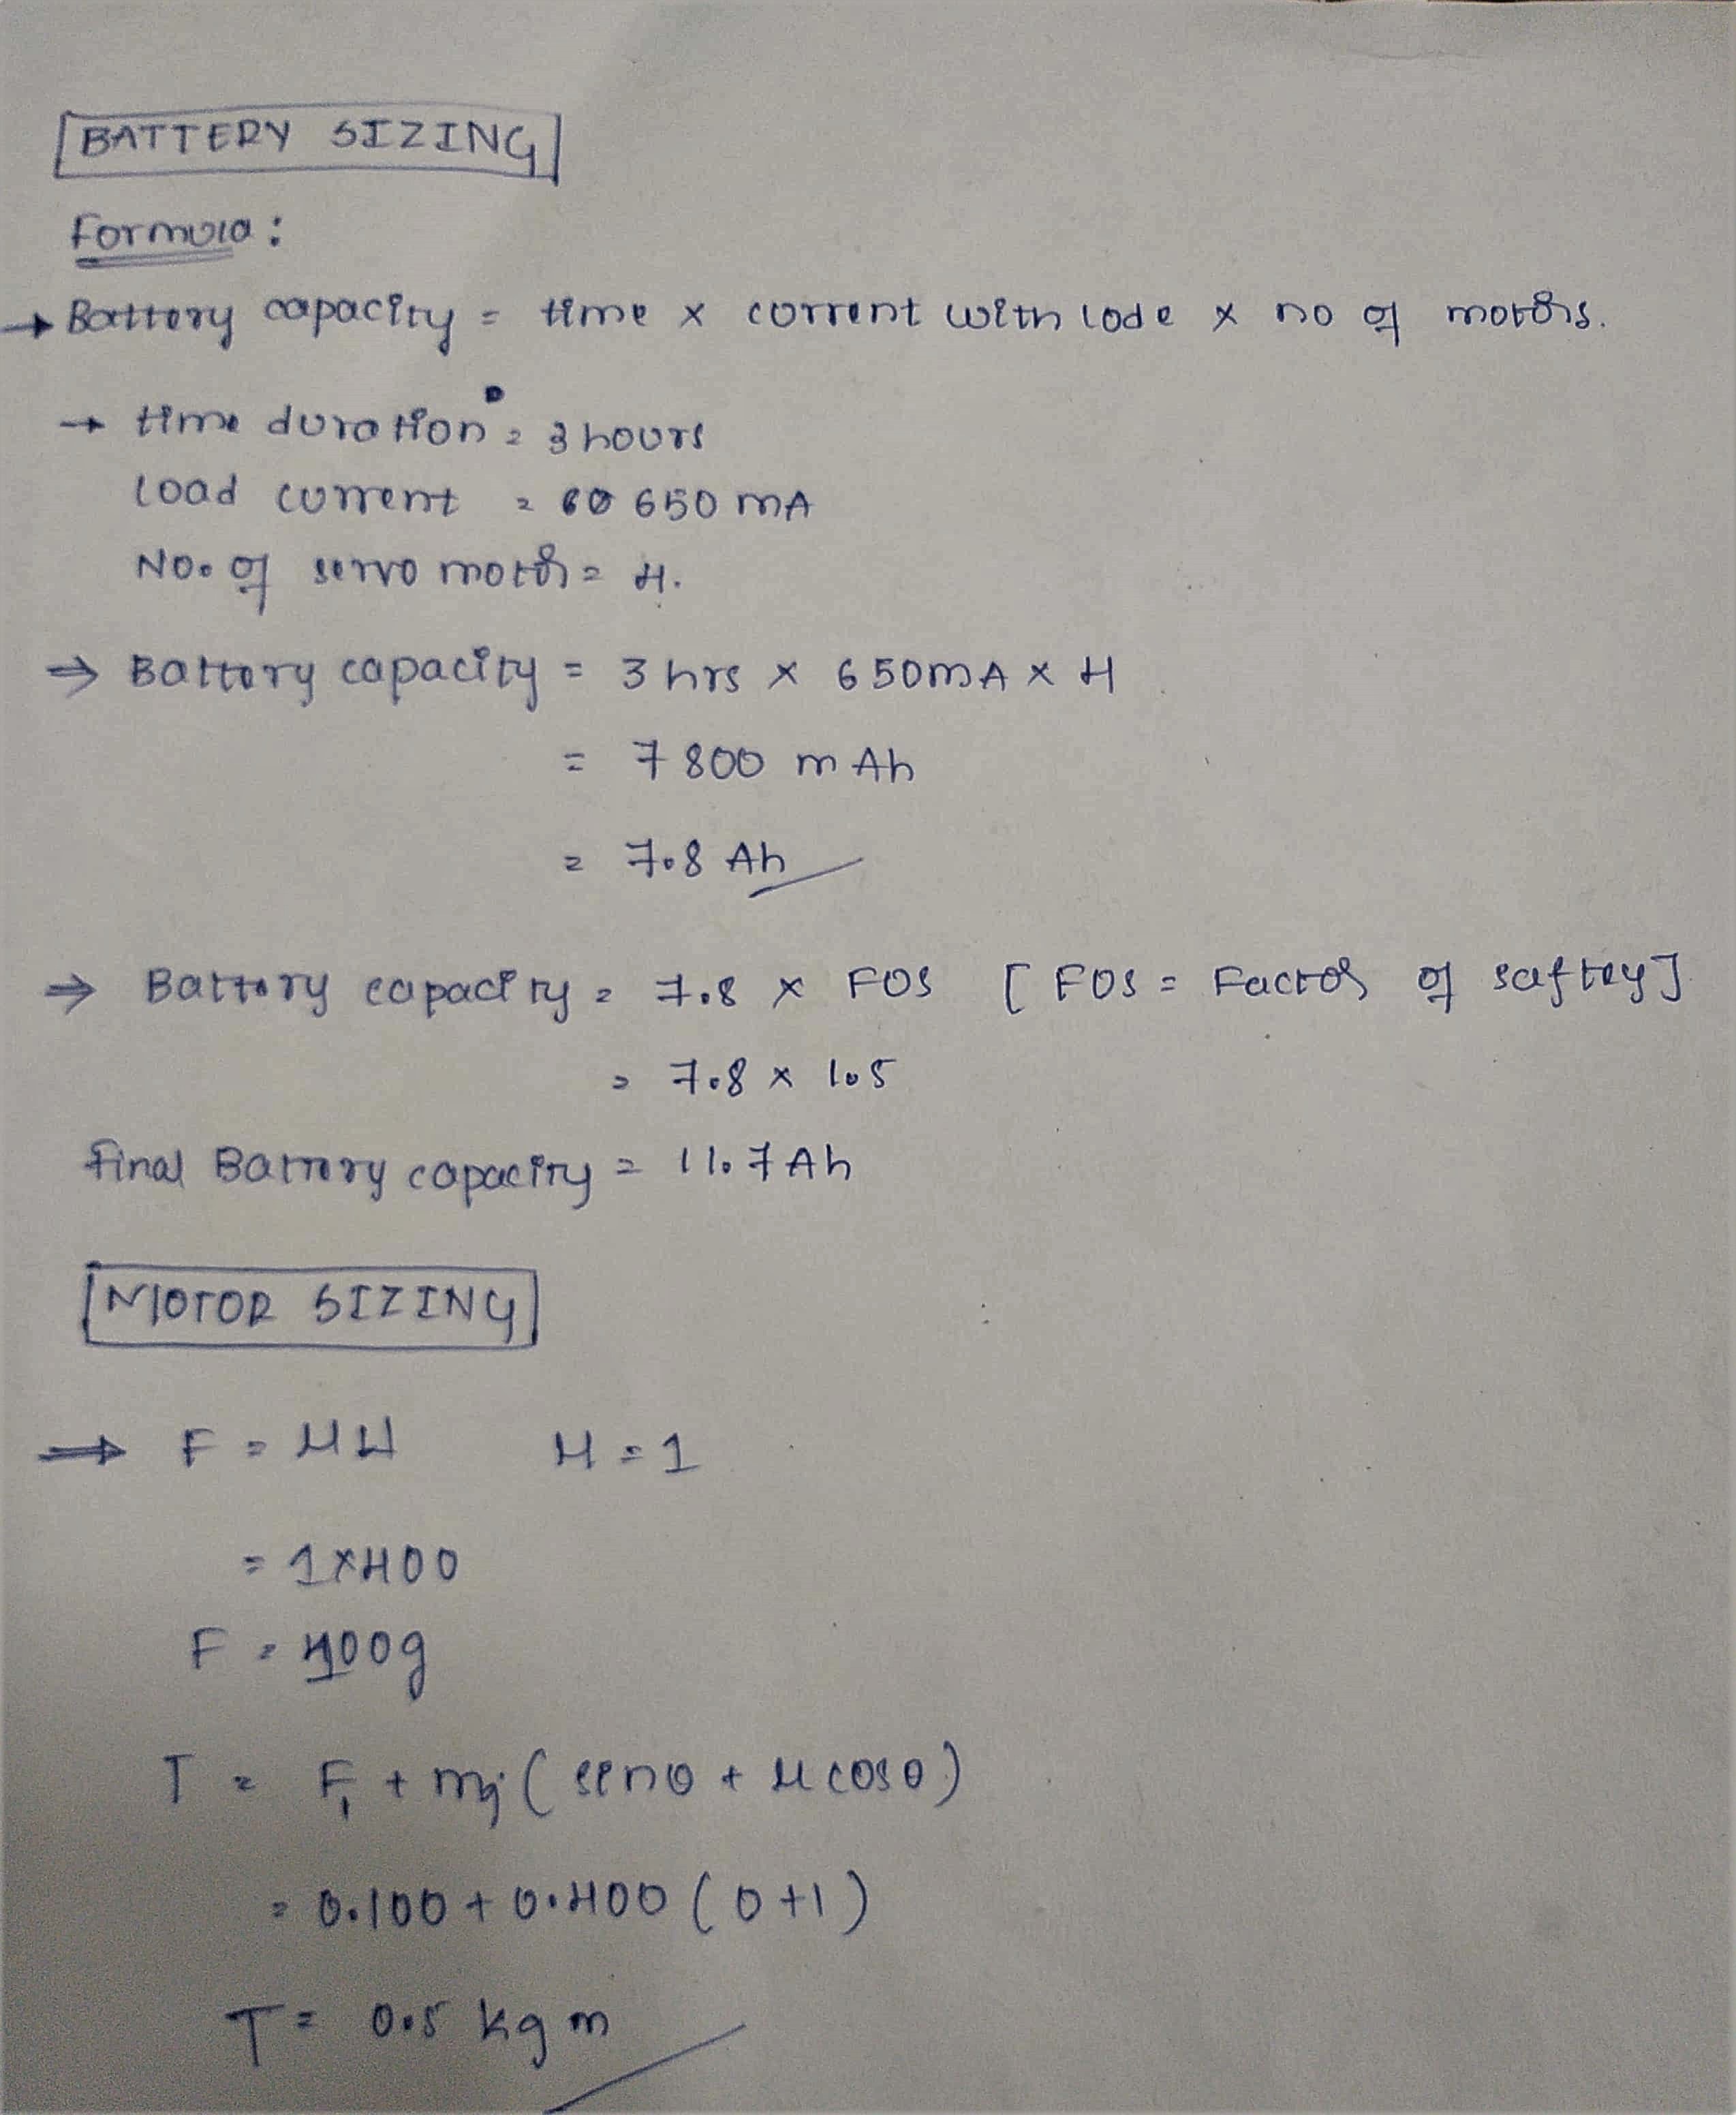 BATTERY SIZING
Formula :
→ Battery capacity = time x current with lode x no of motors.
→ time duration = 3 hours
load current = 650 mA
No. of servo motor = 4.
⇒ Battery capacity = 3 hrs x 650mA x 4
= 7800 mAh
= 7.8 Ah
⇒ Battery capacity = 7.8 x FOS [FOS = Factor of saftey]
= 7.8 x 1.5
final Battery capacity = 11.7 Ah
MOTOR SIZING
⇒ F = μW μ = 1
= 1x400
F = 400g
T = F₁ + mg (sinθ + μ cosθ)
= 0.100 + 0.400 (0+1)
T = 0.5 kg m